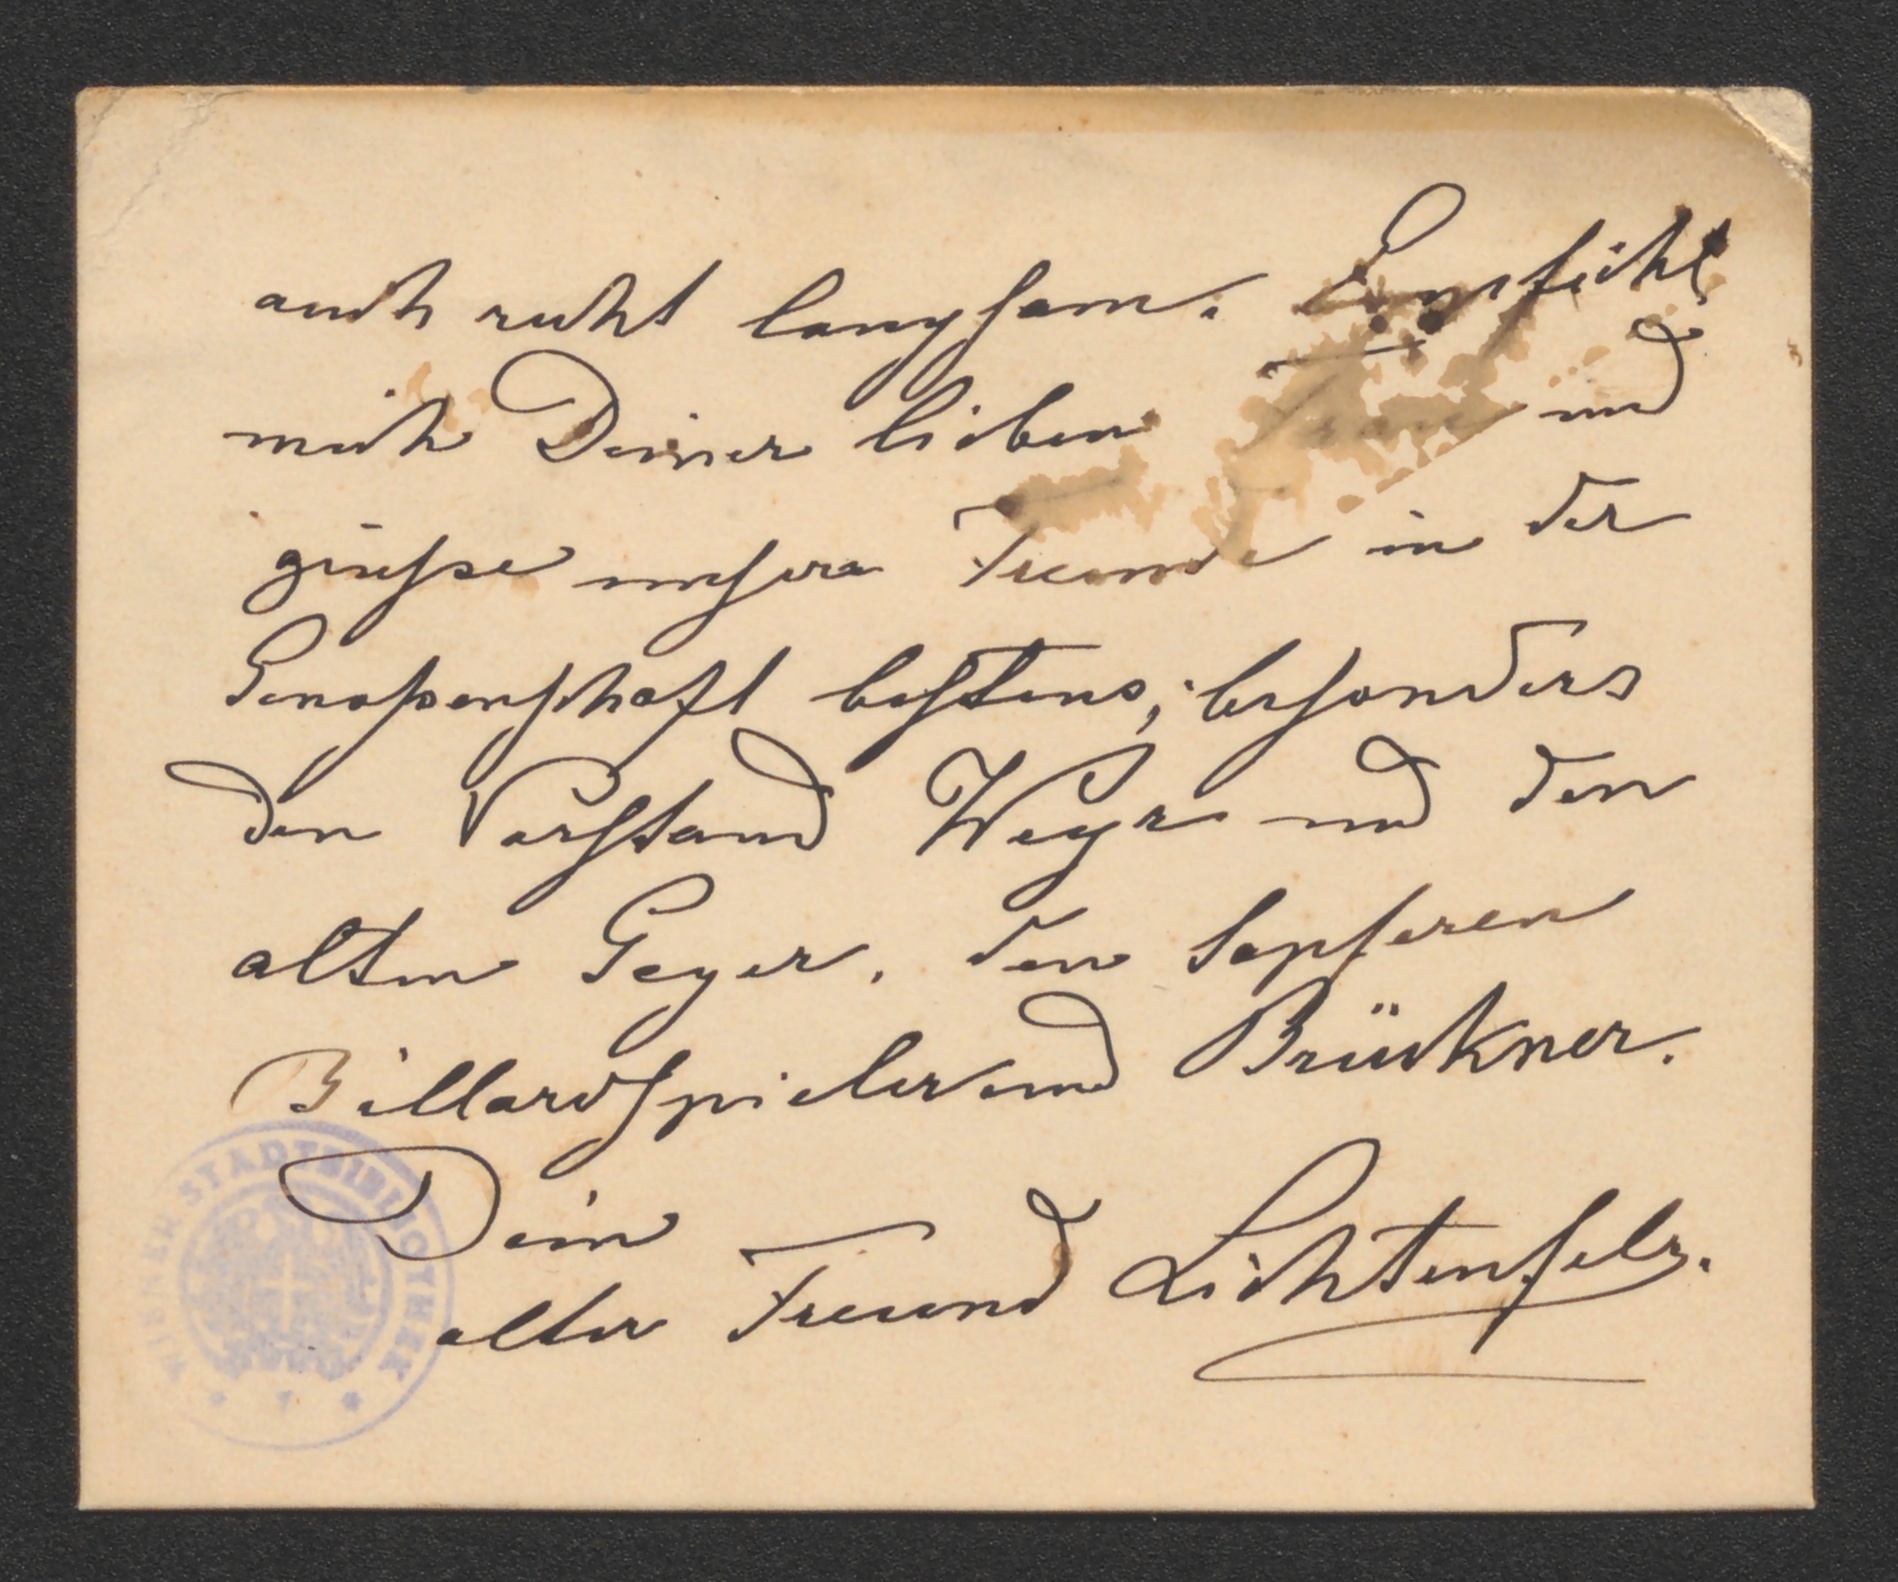 auch recht langsam. Empfiehl
mich Deiner lieben Frau und
grüsse unsere Freunde in der
Genossenschaft bestens, besonders
den Vorstand Weyr und den
alten Geyer, den tapferen
Billardspieler und Brückner.
Dein
alter Freund Lichtenfels.
WIENER STADTBIBLIOTHEK